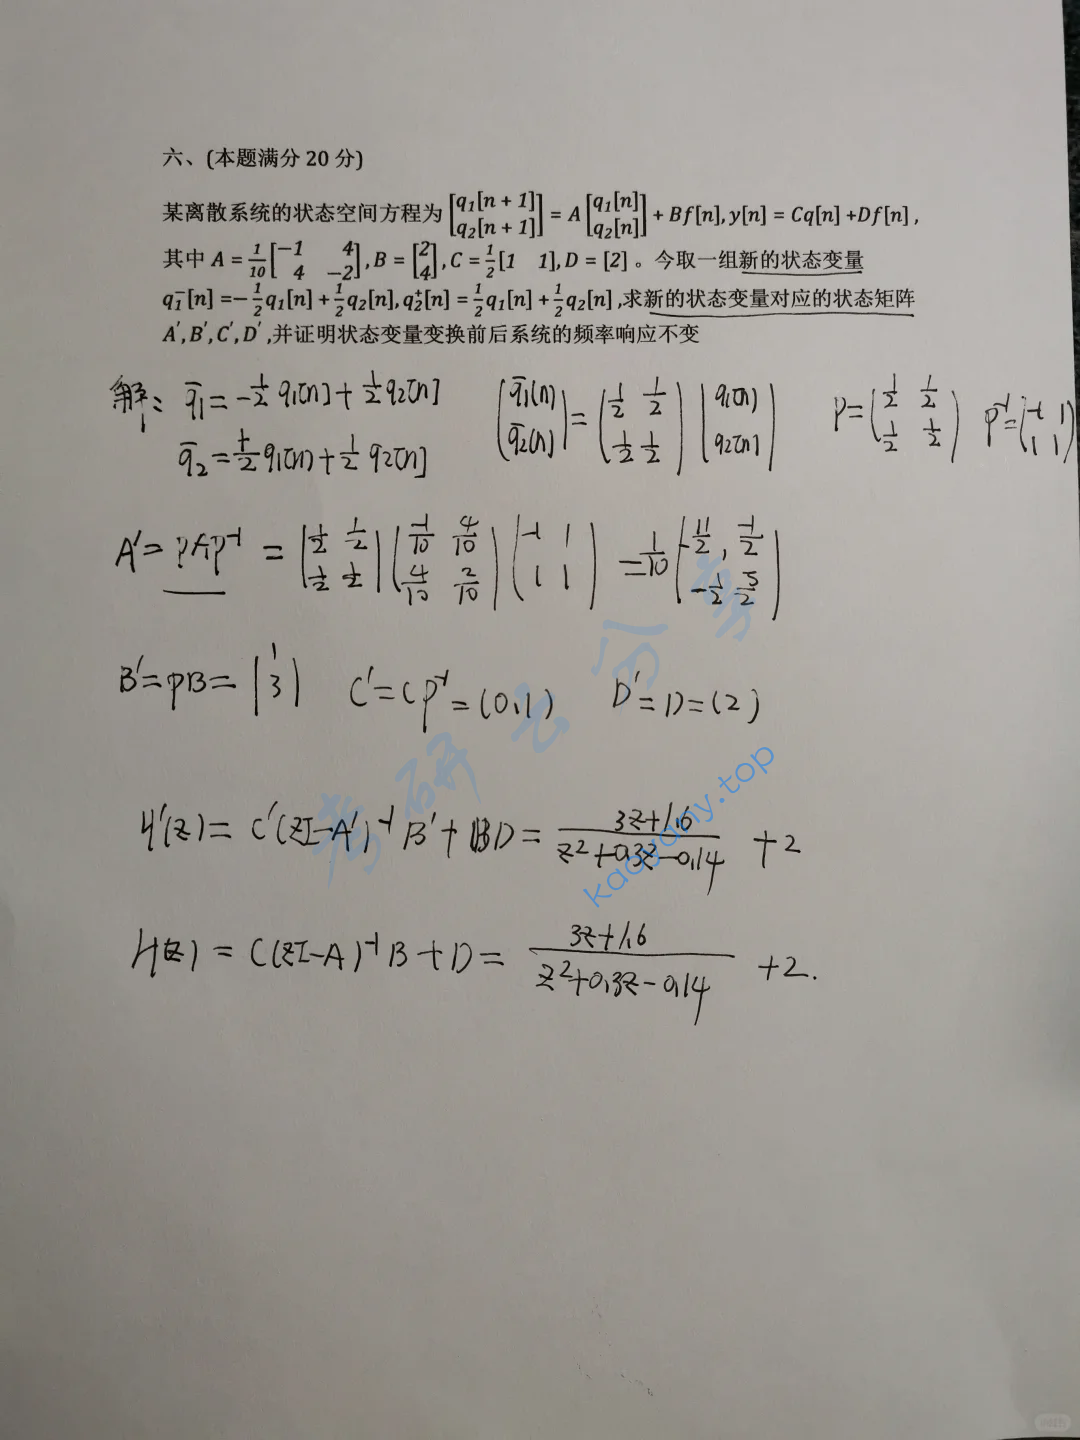 六、(本题满分 20 分)
某离散系统的状态空间方程为 [q₁[n + 1] q₂[n + 1]] = A [q₁[n] q₂[n]] + Bf[n], y[n] = Cq[n] +Df[n] ,
其中 A = 1/10 [−1 4 4 −2], B = [2 4], C = 1/2 [1 1], D = [2] 。今取一组新的状态变量
q₁⁻[n] =− 1/2 q₁[n] + 1/2 q₂[n], q₂⁺[n] = 1/2 q₁[n] + 1/2 q₂[n] ,求新的状态变量对应的状态矩阵
A′, B′, C′, D′ ,并证明状态变量变换前后系统的频率响应不变
解: q̄₁ = −1/2 q₁[n] + 1/2 q₂[n] (q̄₁(n) q̄₂(n)) = (1/2 1/2 1/2 1/2) (q₁(n) q₂[n]) P = (1/2 1/2 1/2 1/2) P⁻¹ = (−1 1 1 1)
q̄₂ = 1/2 q₁(n) + 1/2 q₂[n]
A′ = PAP⁻¹ = (1/2 1/2 1/2 1/2) (−1/10 4/10 4/10 2/10) (−1 1 1 1) = 1/10 (−11/2 , −1/2 −1/2 5/2)
B′ = PB = (1 3) C′ = CP⁻¹ = (0,1) D′ = D = (2)
H′(z) = C′(zI−A′)⁻¹ B′ + D = 3z+1.6 / z²+0.3z−0.14 + 2
H(z) = C(zI−A)⁻¹ B + D = 3z+1.6 / z²+0.3z−0.14 + 2.
考研云分享
kaoyany.top